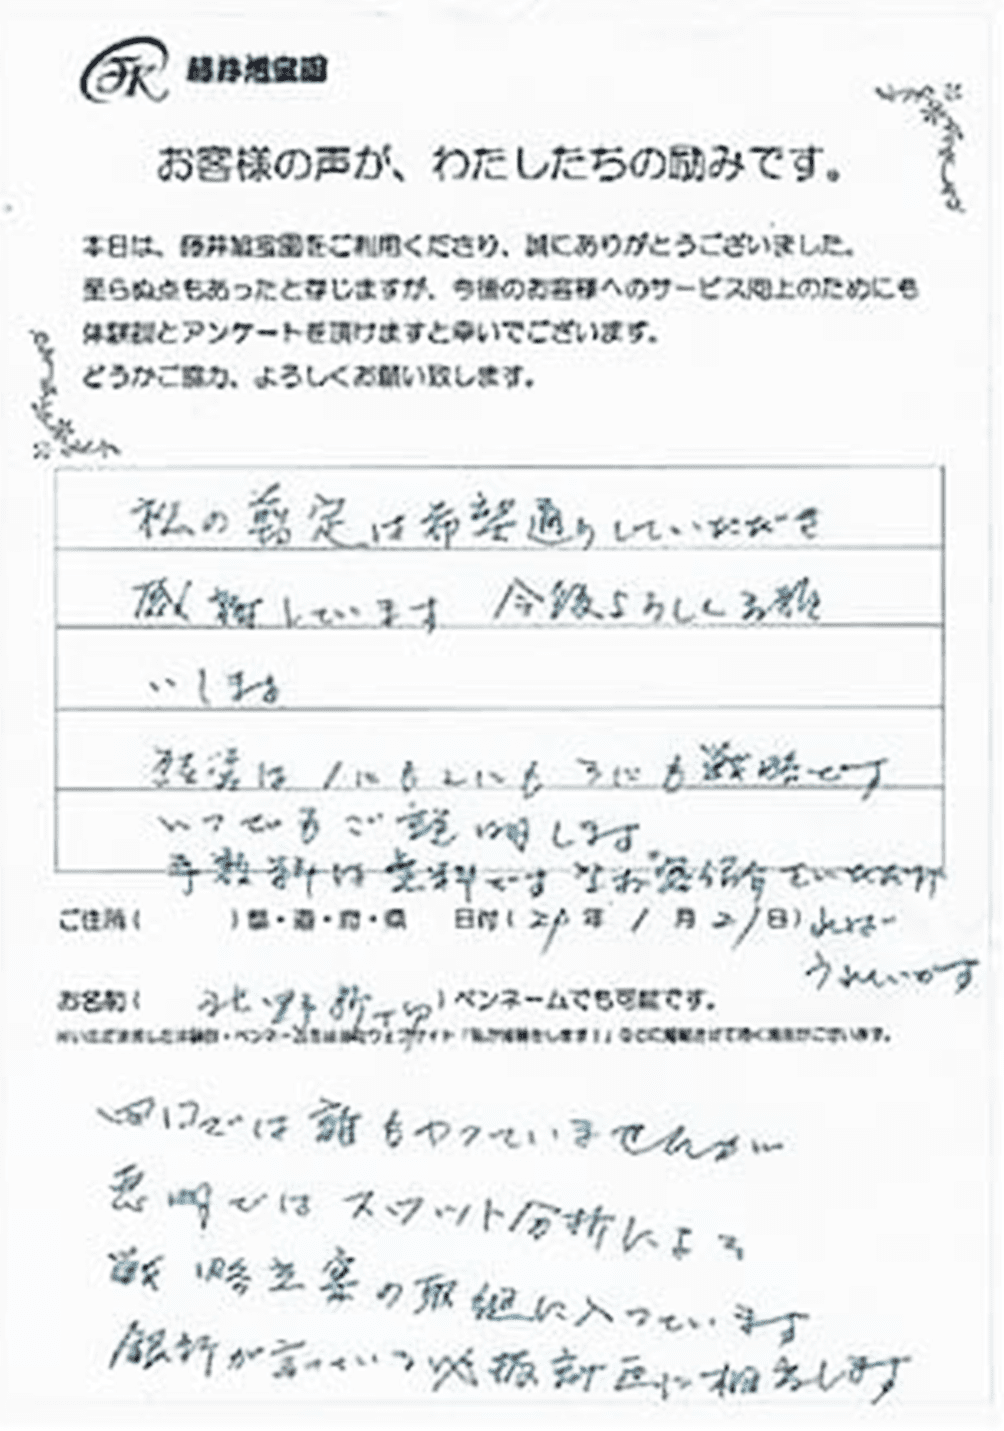 JK 藤井旭宝園
お客様の声が、わたしたちの励みです。
本日は、藤井旭宝園をご利用くださり、誠にありがとうございました。
至らぬ点もあったと存じますが、今後のお客様へのサービス向上のためにも
体験談とアンケートを頂けますと幸いでございます。
どうかご協力、よろしくお願い致します。
私の剪定は希望通りしていただき
感謝しています 今後よろしくお願
いします
経営は1にも2にも3にも戦略です
いつでもご説明します
手数料は無料です お客紹介していただけ
ご住所( )都・道・府・県 日付(21年1月21日)
れば
うれしいです
お名前( 北野 )ペンネームでも可能です。
四口では誰もやっていませんが
では スワット分析による
戦略立案の取組に入っています
銀行が言っている 計画に相当します